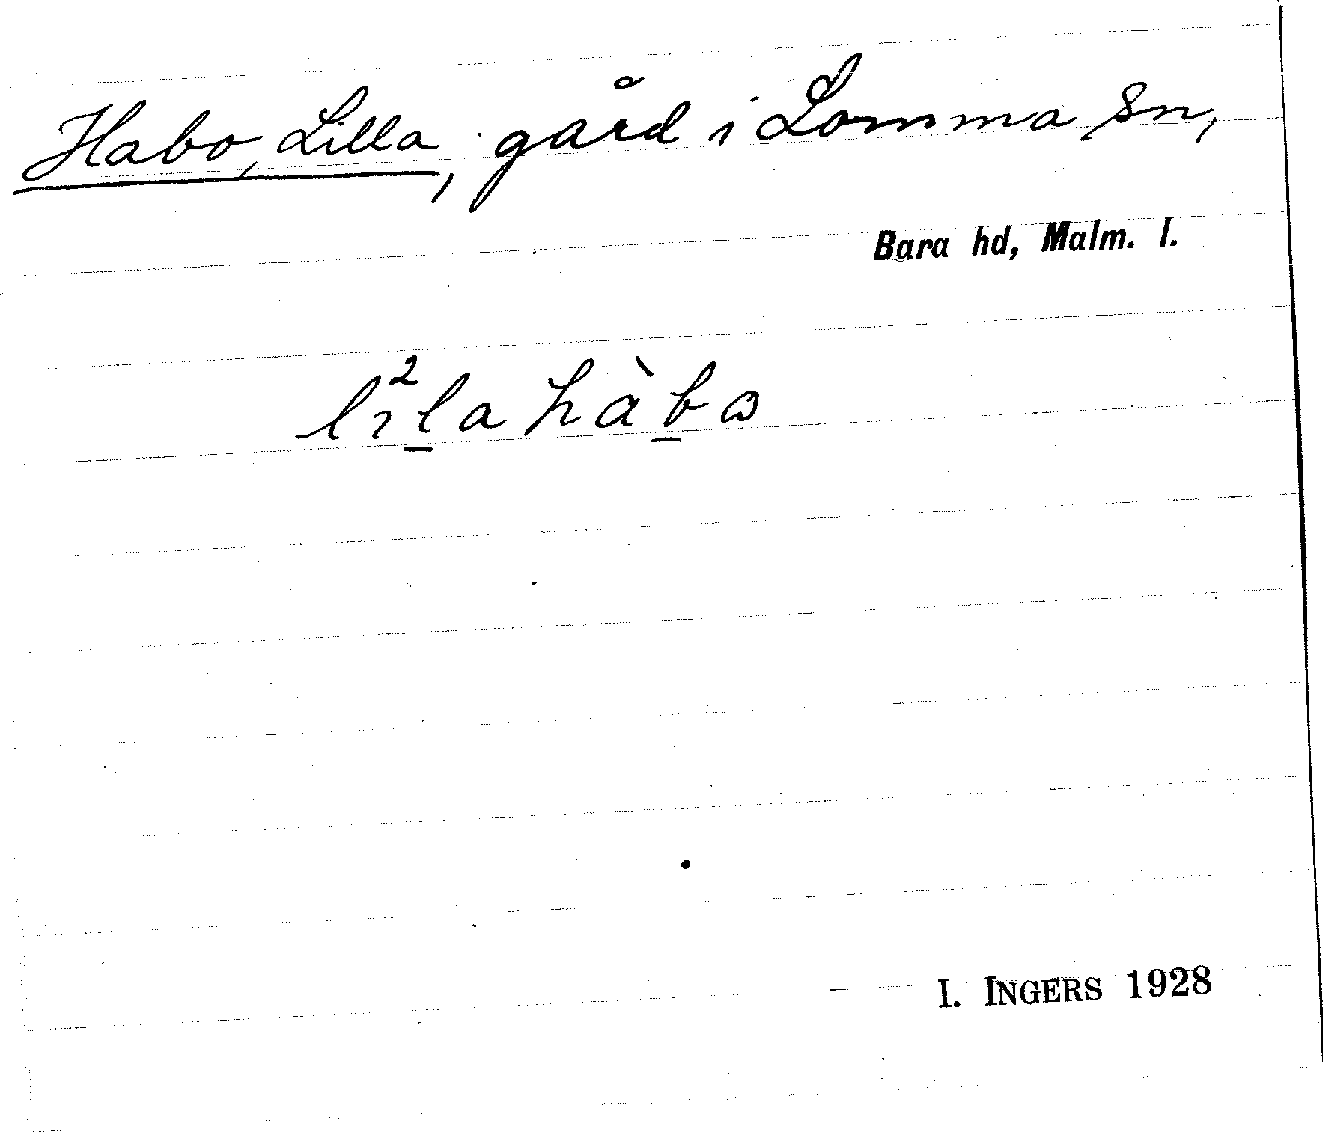 Habo, Lilla, gård i Lomma sn,
Bara hd, Malm. l.
li²l̲a hàb̲ɷ
I. INGERS 1928